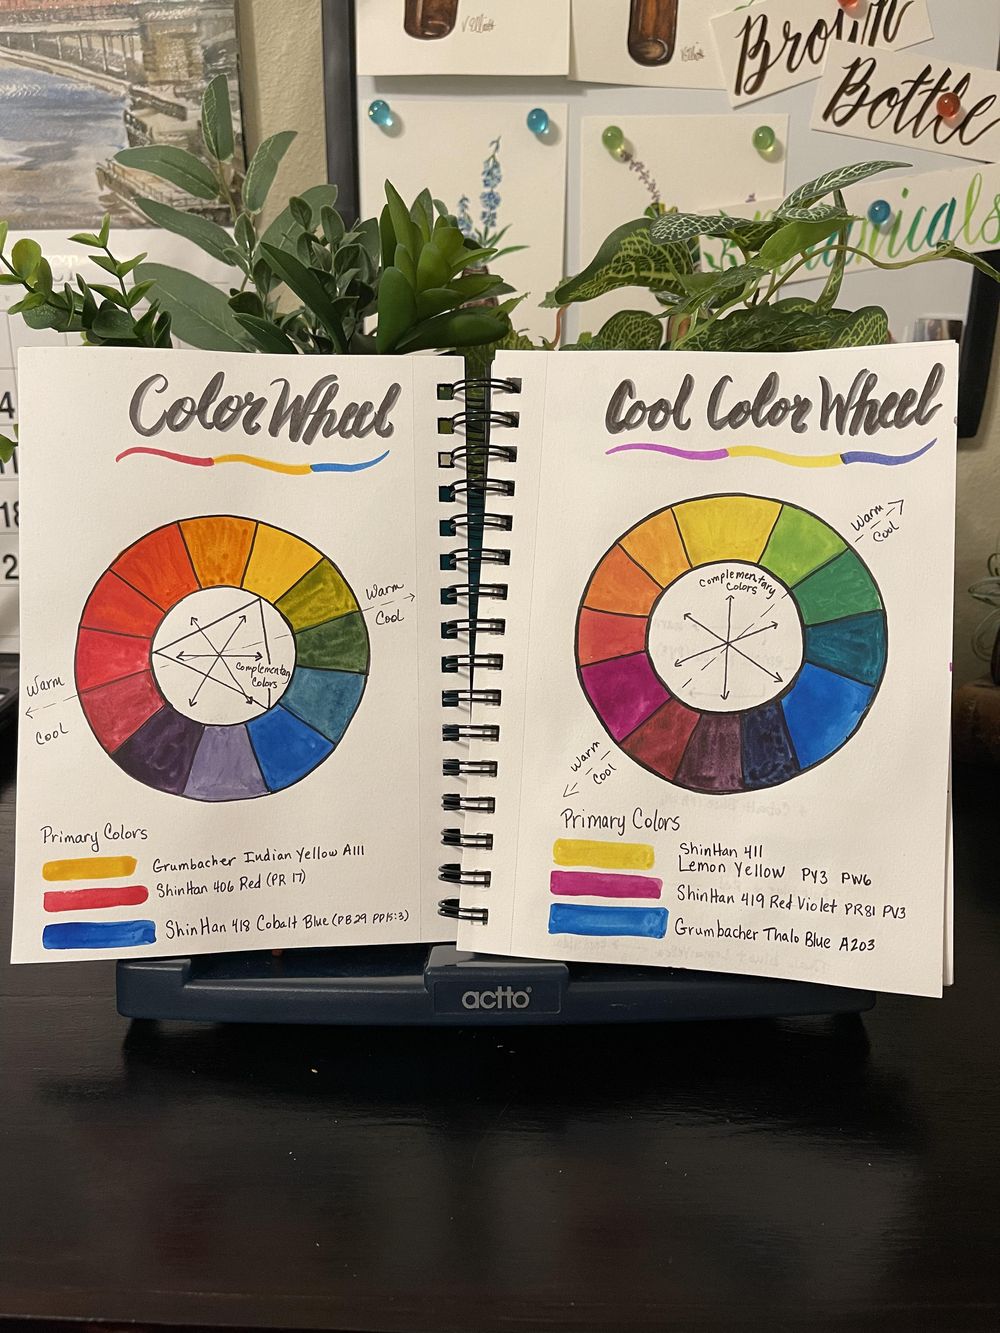 VElliott
VElliott
Brown
Bottle
Botanicals
4
11
18
2
Color Wheel
Warm
Cool
Complementary
Colors
Warm
Cool
Primary Colors
Grumbacher Indian Yellow A111
ShinHan 406 Red (PR 17)
ShinHan 418 Cobalt Blue (PB29 PP15:3)
Cool Color Wheel
Warm
Cool
Complementary
Colors
Warm
Cool
Primary Colors
ShinHan 411
Lemon Yellow PY3 PW6
ShinHan 419 Red Violet PR81 PV3
Grumbacher Thalo Blue A203
actto